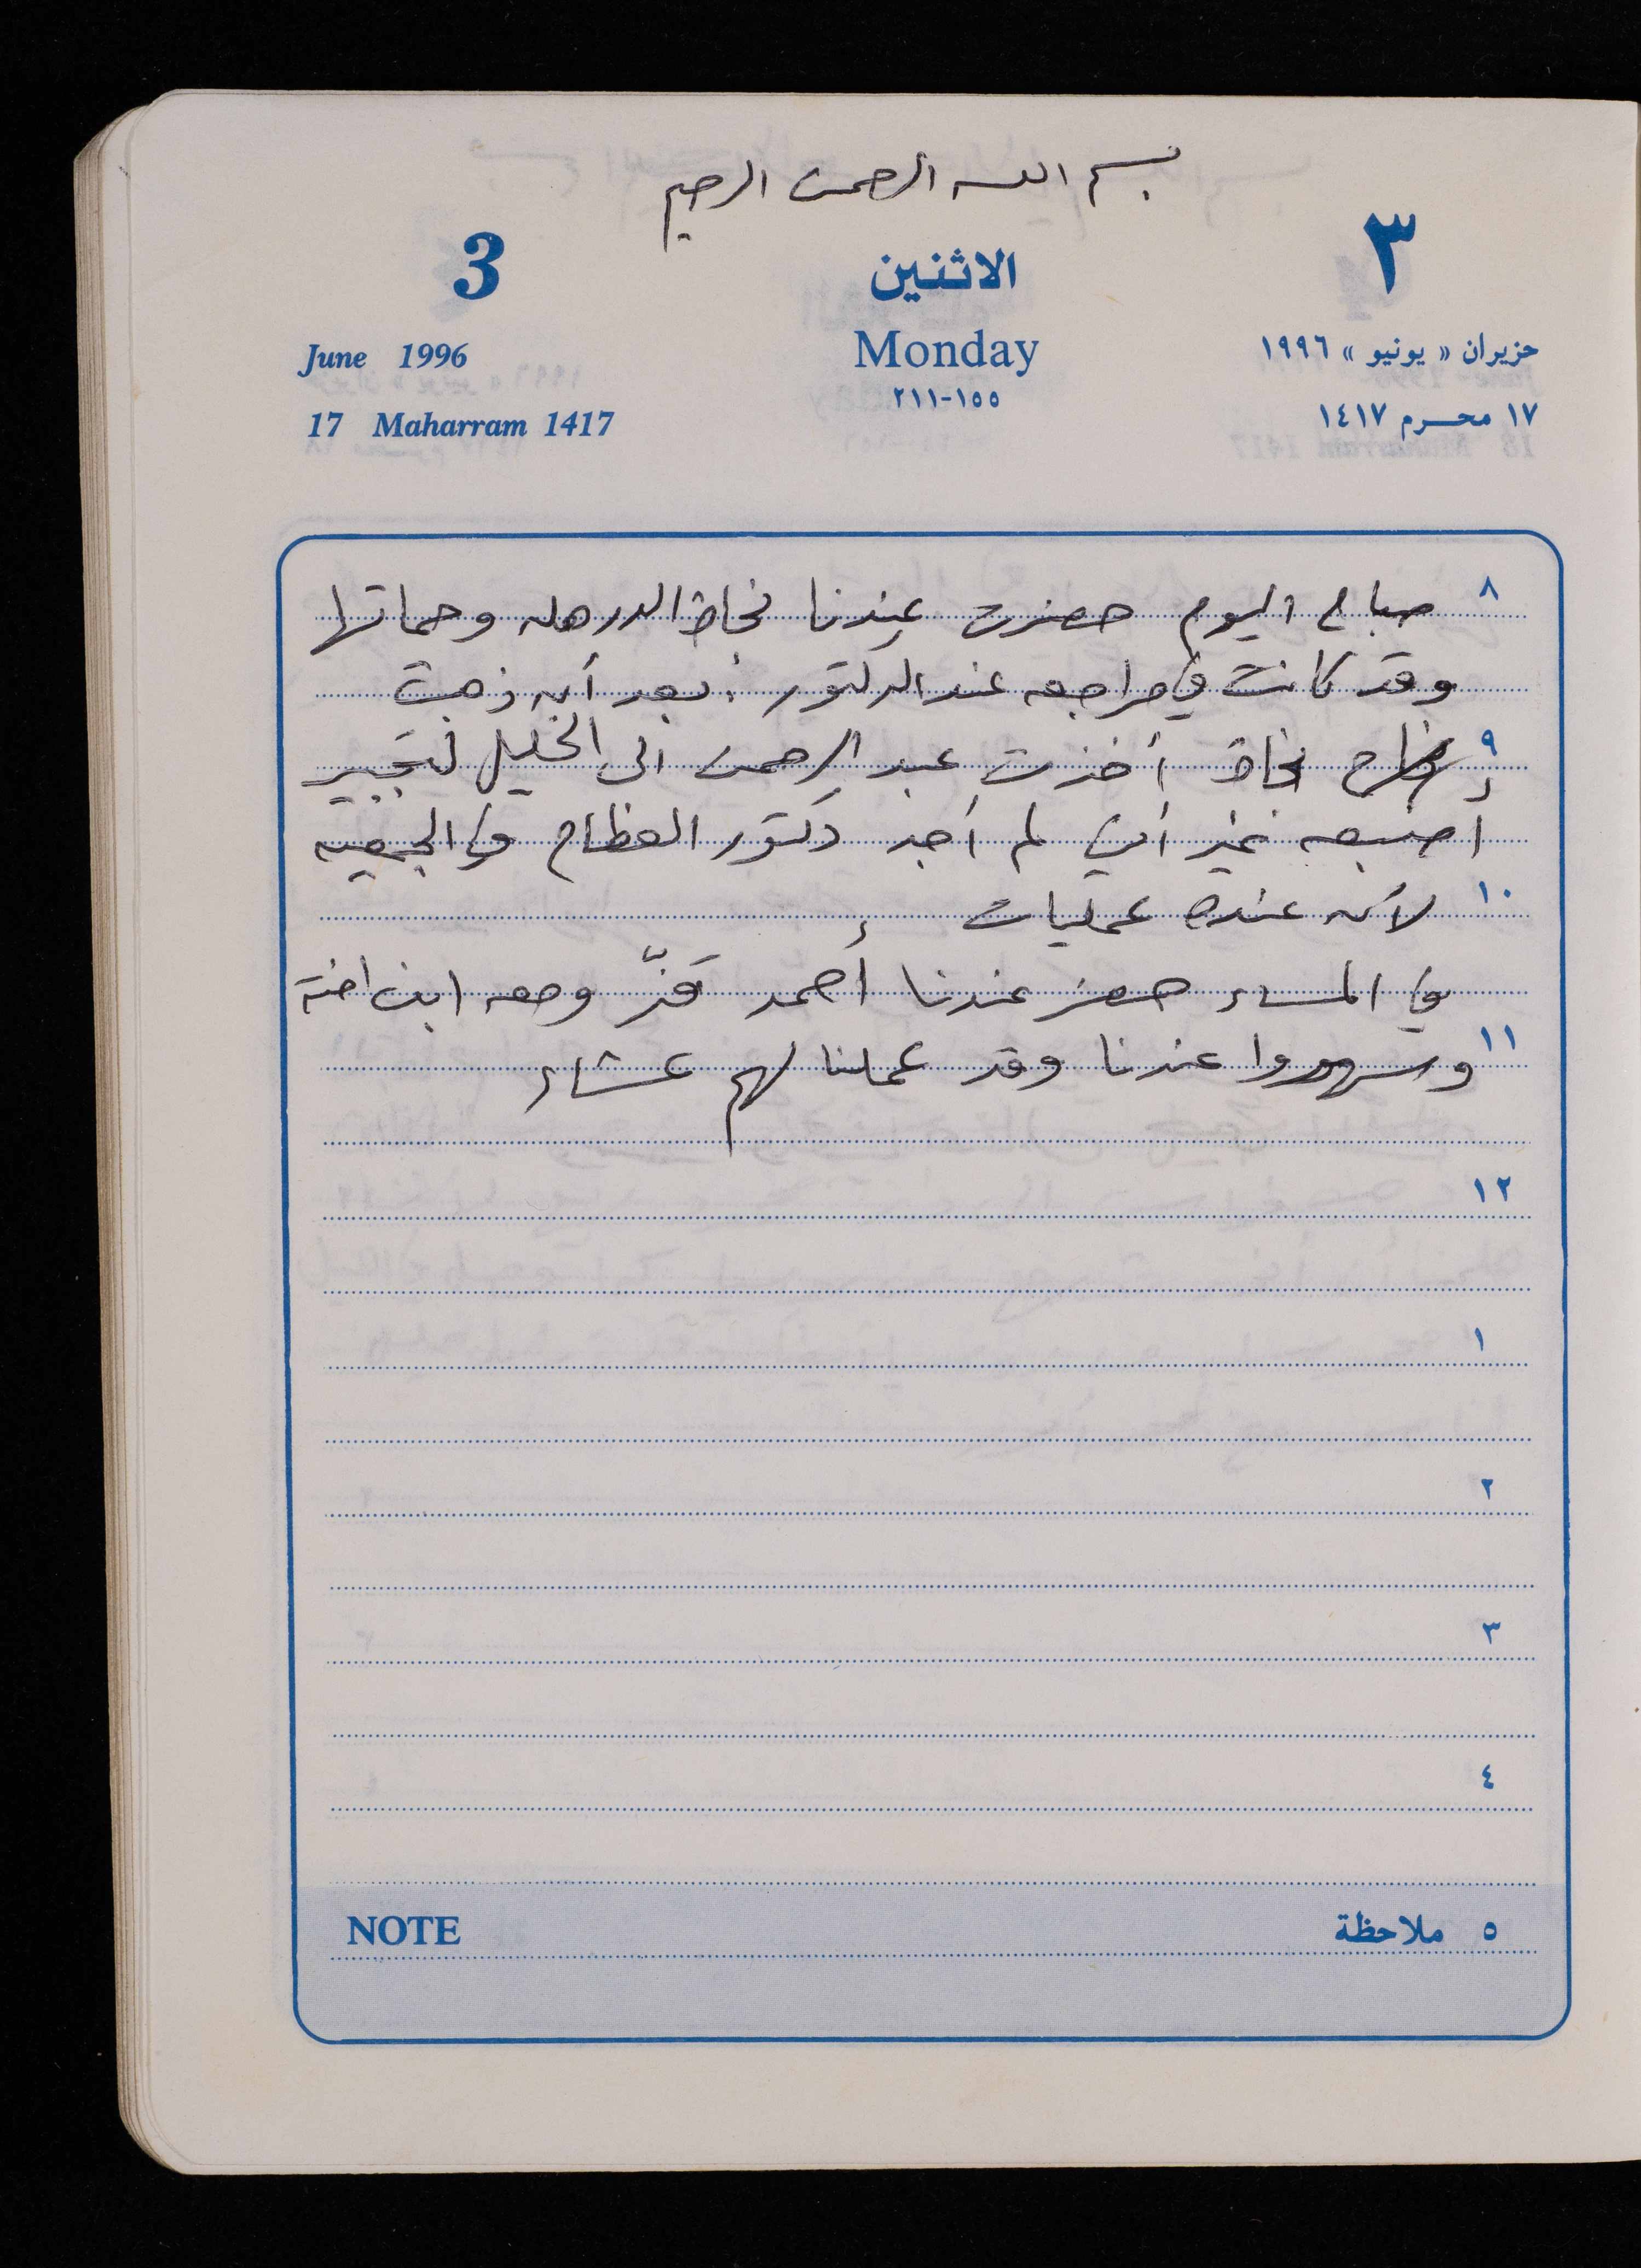 بسم الله الرحمن الرحيم
3 الاثنين ٣
June 1996 Monday حزيران « يونيو » ١٩٩٦
١٥٥-٢١١
17 Maharram 1417 ١٧ محرم ١٤١٧
٨ صباح اليوم حضرت عندنا نجاح وحماتها
وقد كانت في مراجعه عند الدكتور . بعد أن ذهبت
٩ نجاح أخذت عبد الرحمن الى الخليل لتجبير
أصبعه غير أني لم أجد دكتور العظام في الجمعيه
١٠ لأنه عنده عمليات
في المساء حضر عندنا أحمد قزّ ومعه ابن اخته
١١ وسهروا عندنا وقد عملنا لهم عشاء
١٢
١
٢
٣
٤
NOTE ٥ ملاحظة